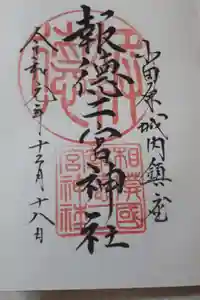 小田原城内鎮座
報徳二宮神社
令和六年十二月十八日
報徳
相模國
宮神社